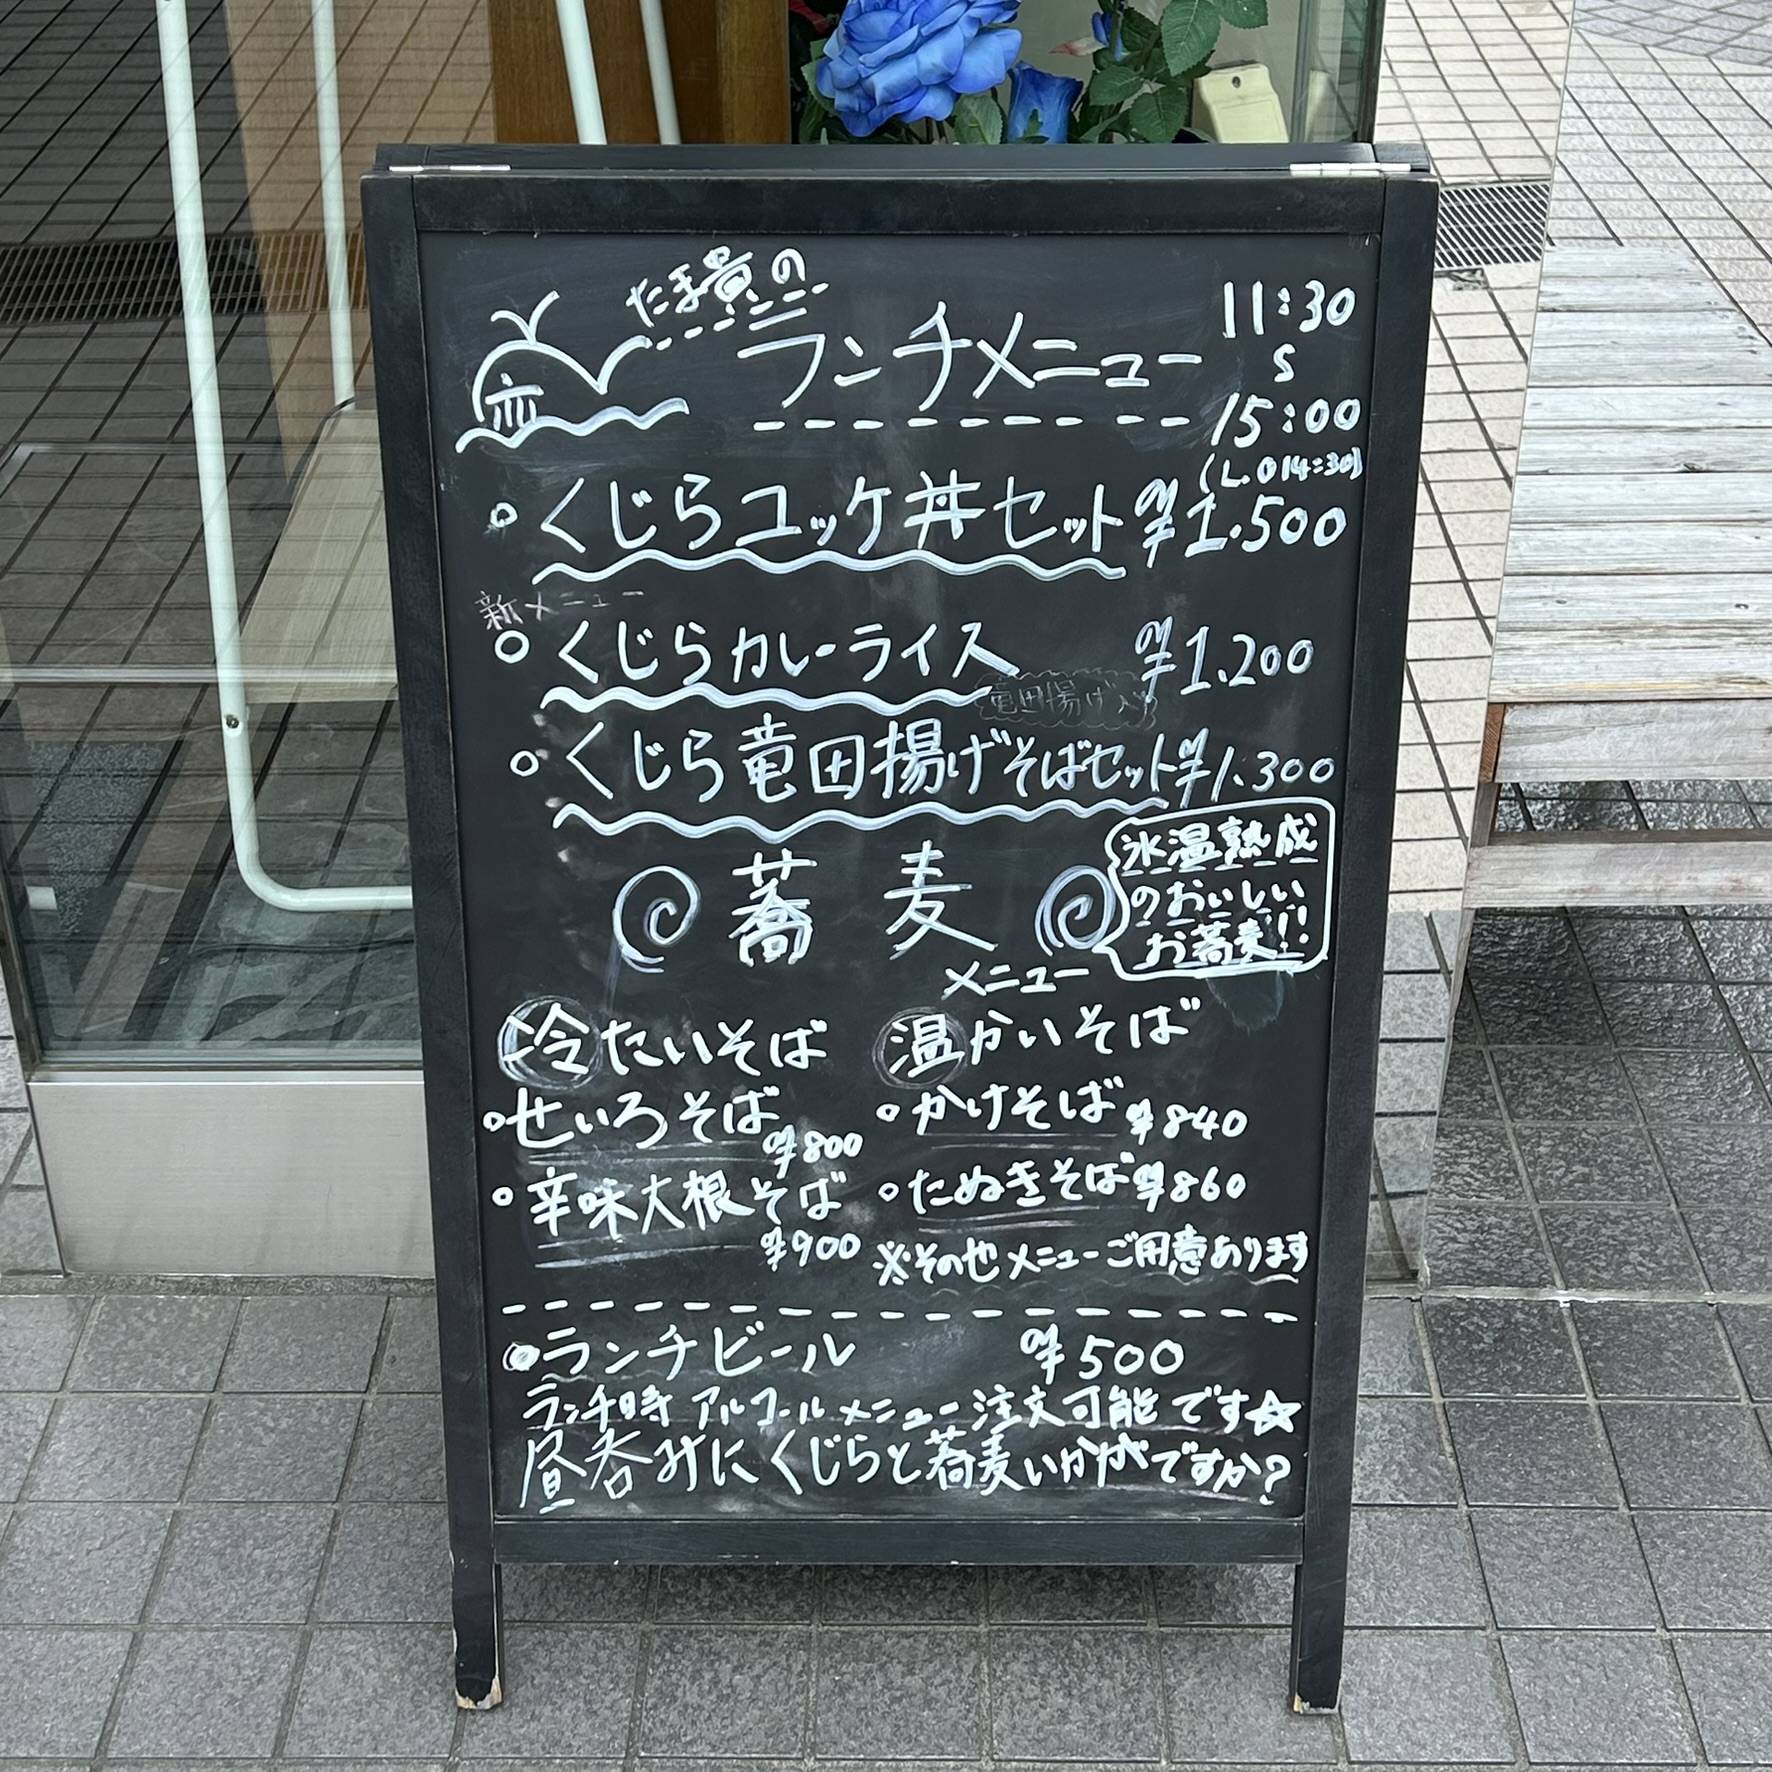 たま貴の
ランチメニュー
11:30
S
15:00
(L.O 14:30)
くじらユッケ丼セット ¥1.500
新メニュー
くじらカレーライス ¥1.200
竜田揚げ入り
くじら竜田揚げそばセット ¥1.300
蕎麦
メニュー
氷温熟成
のおいしい
お蕎麦!!
冷たいそば
せいろそば
¥800
辛味大根そば
¥900
温かいそば
かけそば ¥840
たぬきそば ¥860
※その他メニューご用意あります
ランチビール ¥500
ランチ時 アルコールメニュー注文可能です☆
昼呑みにくじらと蕎麦いかがですか?